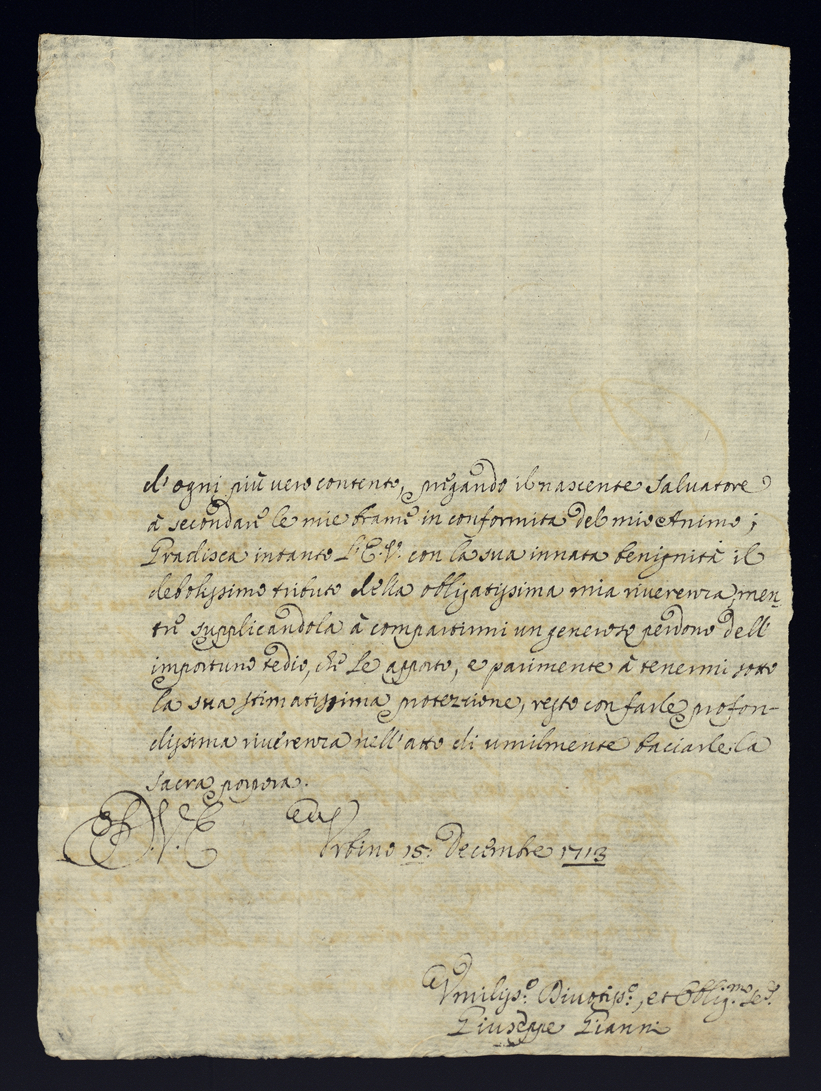 d'ogni più vero contento, pregando il nascente Salvatore
à secondare le mie brame in conformità del mio Animo;
Gradisca intanto l'E.V. con la sua innata benignità il
debolissimo tributo della obligatissima mia riverenza, men-
tre supplicandola à compartirmi un generoso perdono dell'
importuno tedio, che le apporto, e parimente à tenermi sotto
la sua stimatissima protezzione, resto con farle profon-
dissima riverenza nell'atto di umilmente baciarle la
sacra porpora.
D.V.E
Urbino 15: Decembre 1713
Umiliss.o Divotiss.o, et Oblig.mo Se.re
Giuseppe Gianni